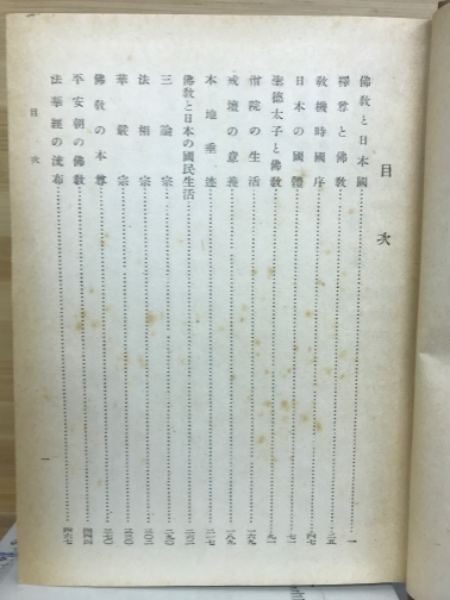 目次
佛敎と日本國……一
釋尊と佛敎……二五
敎機時國序……四七
日本の國體……七一
聖德太子と佛敎……九一
僧院の生活……一六九
戒壇の意義……一八九
本地垂迹……二一七
佛敎と日本の國民生活……二六三
三論宗……二九〇
法相宗……三〇三
華嚴宗……三三〇
佛敎の本尊……三七〇
平安朝の佛敎
法華經の流布……四六七
目次
一